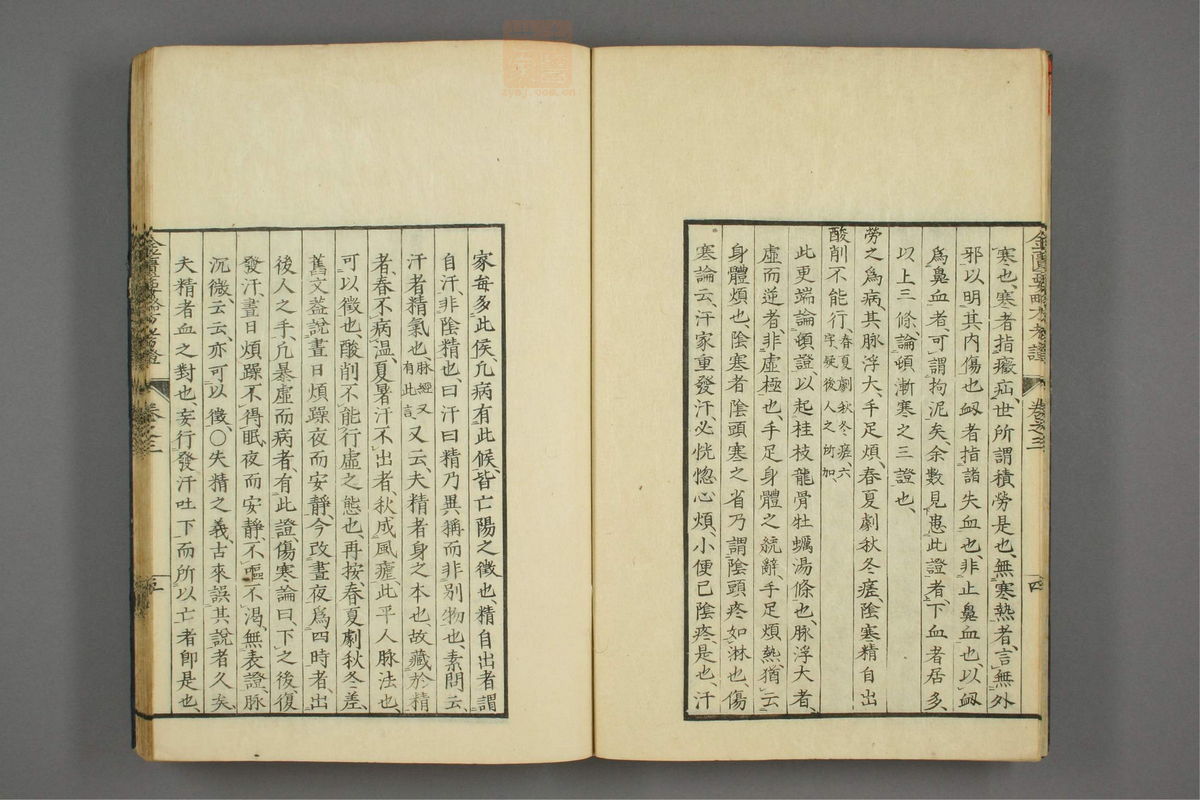 寒也、寒者指癥疝、世所謂積勞是也、無寒熱者、言無外
邪以明其内傷也、衂者指諸失血也、非止鼻血也、以衂
爲鼻血者、可謂拘泥矣、余數見患此證者、下血者居多、
以上三條、論頓漸寒之三證也、
勞之爲病、其脉浮大、手足煩、春夏劇秋冬瘥、陰寒精自出
酸削不能行、春夏劇秋冬瘥、六
字、疑後人之所加、
此更端論頓證、以起桂枝龍骨牡蠣湯條也、脉浮大者、
虛而逆者、非虛極也、手足身體之統辭、手足煩熱猶云
身體煩也、陰寒者陰頭寒之省、乃謂陰頭疼如淋也、傷
寒論云、汗家重發汗、必恍惚心煩、小便已陰疼、是也、汗
金匱要略方考證
卷之三
四
家每多此候、凡病有此候、皆亡陽之徵也、精自出者、謂
自汗、非陰精也、曰汗曰精乃異稱而非別物也、素問云、
汗者精氣也、脉經又
有此言、又云、夫精者身之本也、故藏於精
者、春不病溫、夏暑汗不出者、秋成風瘧、此平人脉法也、
可以徵也、酸削不能行虛之態也、再按春夏劇秋冬差、
舊文蓋說晝日煩躁夜而安靜、今改晝夜爲四時者、出
後人之手、凡暴虛而病者、有此證、傷寒論曰、下之後、復
發汗、晝日煩躁不得眠、夜而安靜、不嘔不渴、無表證、脉
沉微、云云、亦可以徵、○失精之義、古來誤其說者久矣、
夫精者血之對也、妄行發汗吐下而所以亡者卽是也、
卷之三